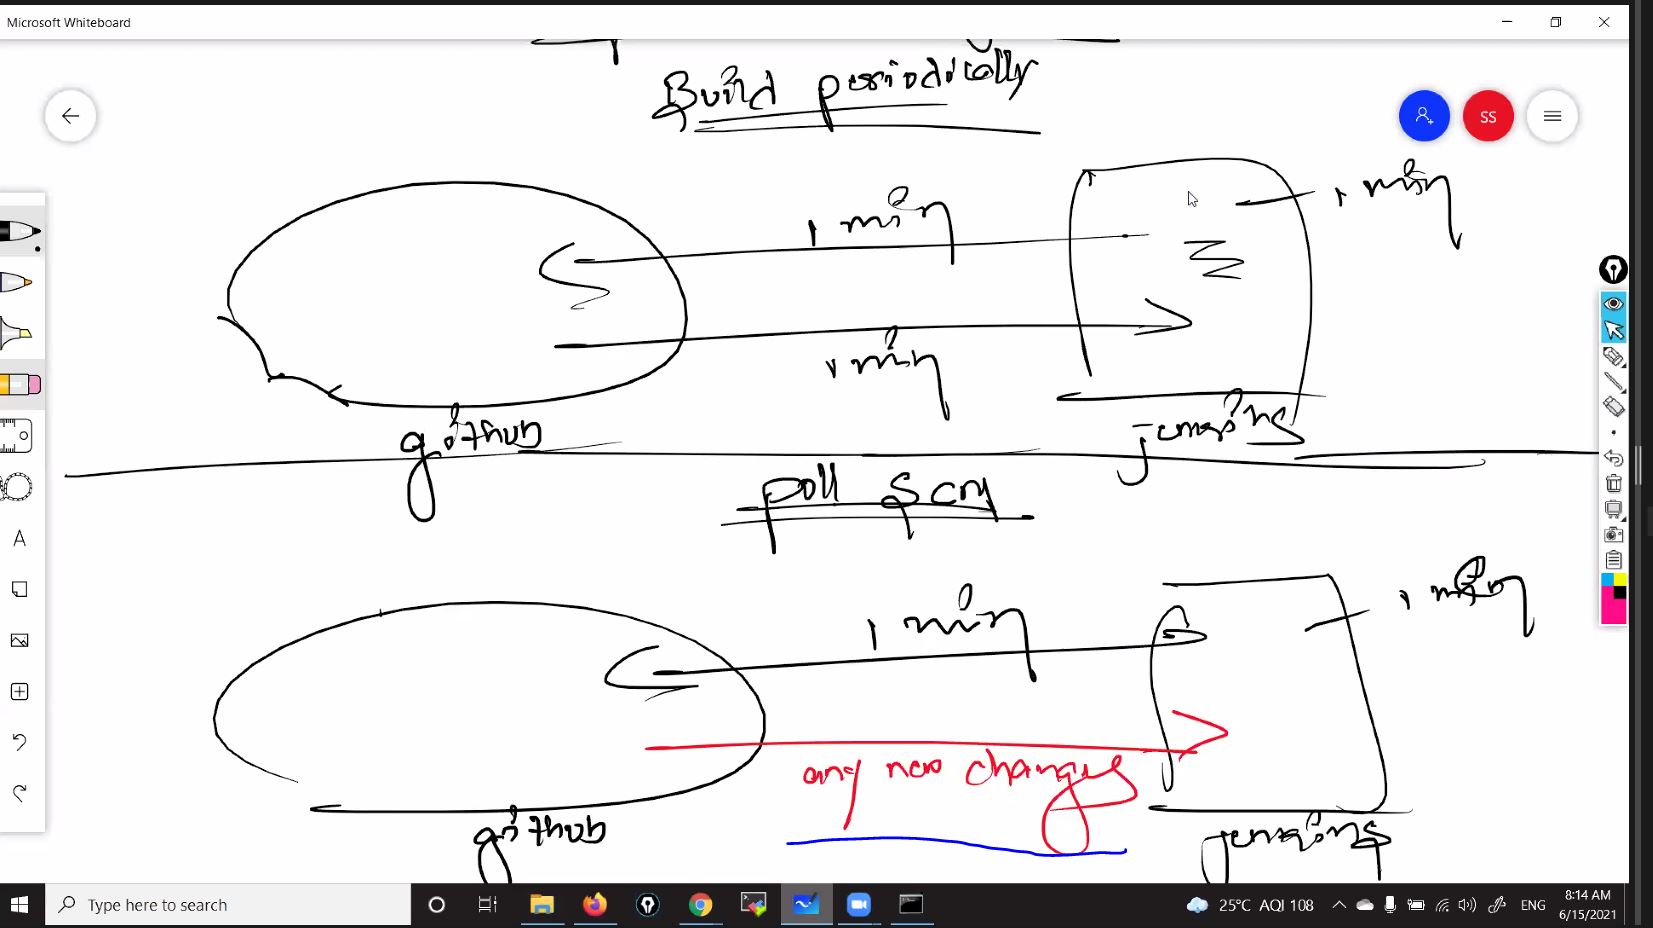 Microsoft Whiteboard
Build periodically
SS
1 min
1 min
1 min
github
jenkins
poll scm
1 min
1 min
any new changes
github
jenkins
A
Type here to search
25°C AQI 108
ENG
8:14 AM
6/15/2021